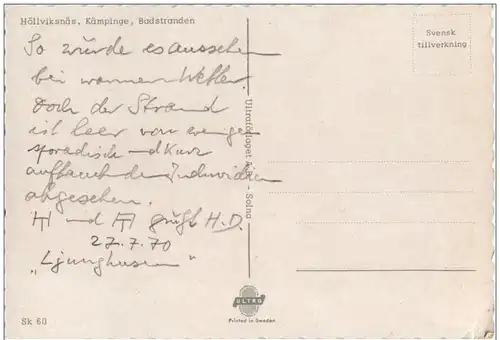 Höllviksnäs, Kämpinge, Badstranden
Svensk
tillverkning
So würde es aussehen
bei warmen Wetter.
Doch der Strand
ist leer von wenigen
sporadisch und kurz
auftauchenden Individuen
abgesehen.
und grüßt H.D.
27.7.70
"Ljunghusen"
Ultraförlaget A.B. - Solna
ULTRA
Printed in Sweden
Sk 60